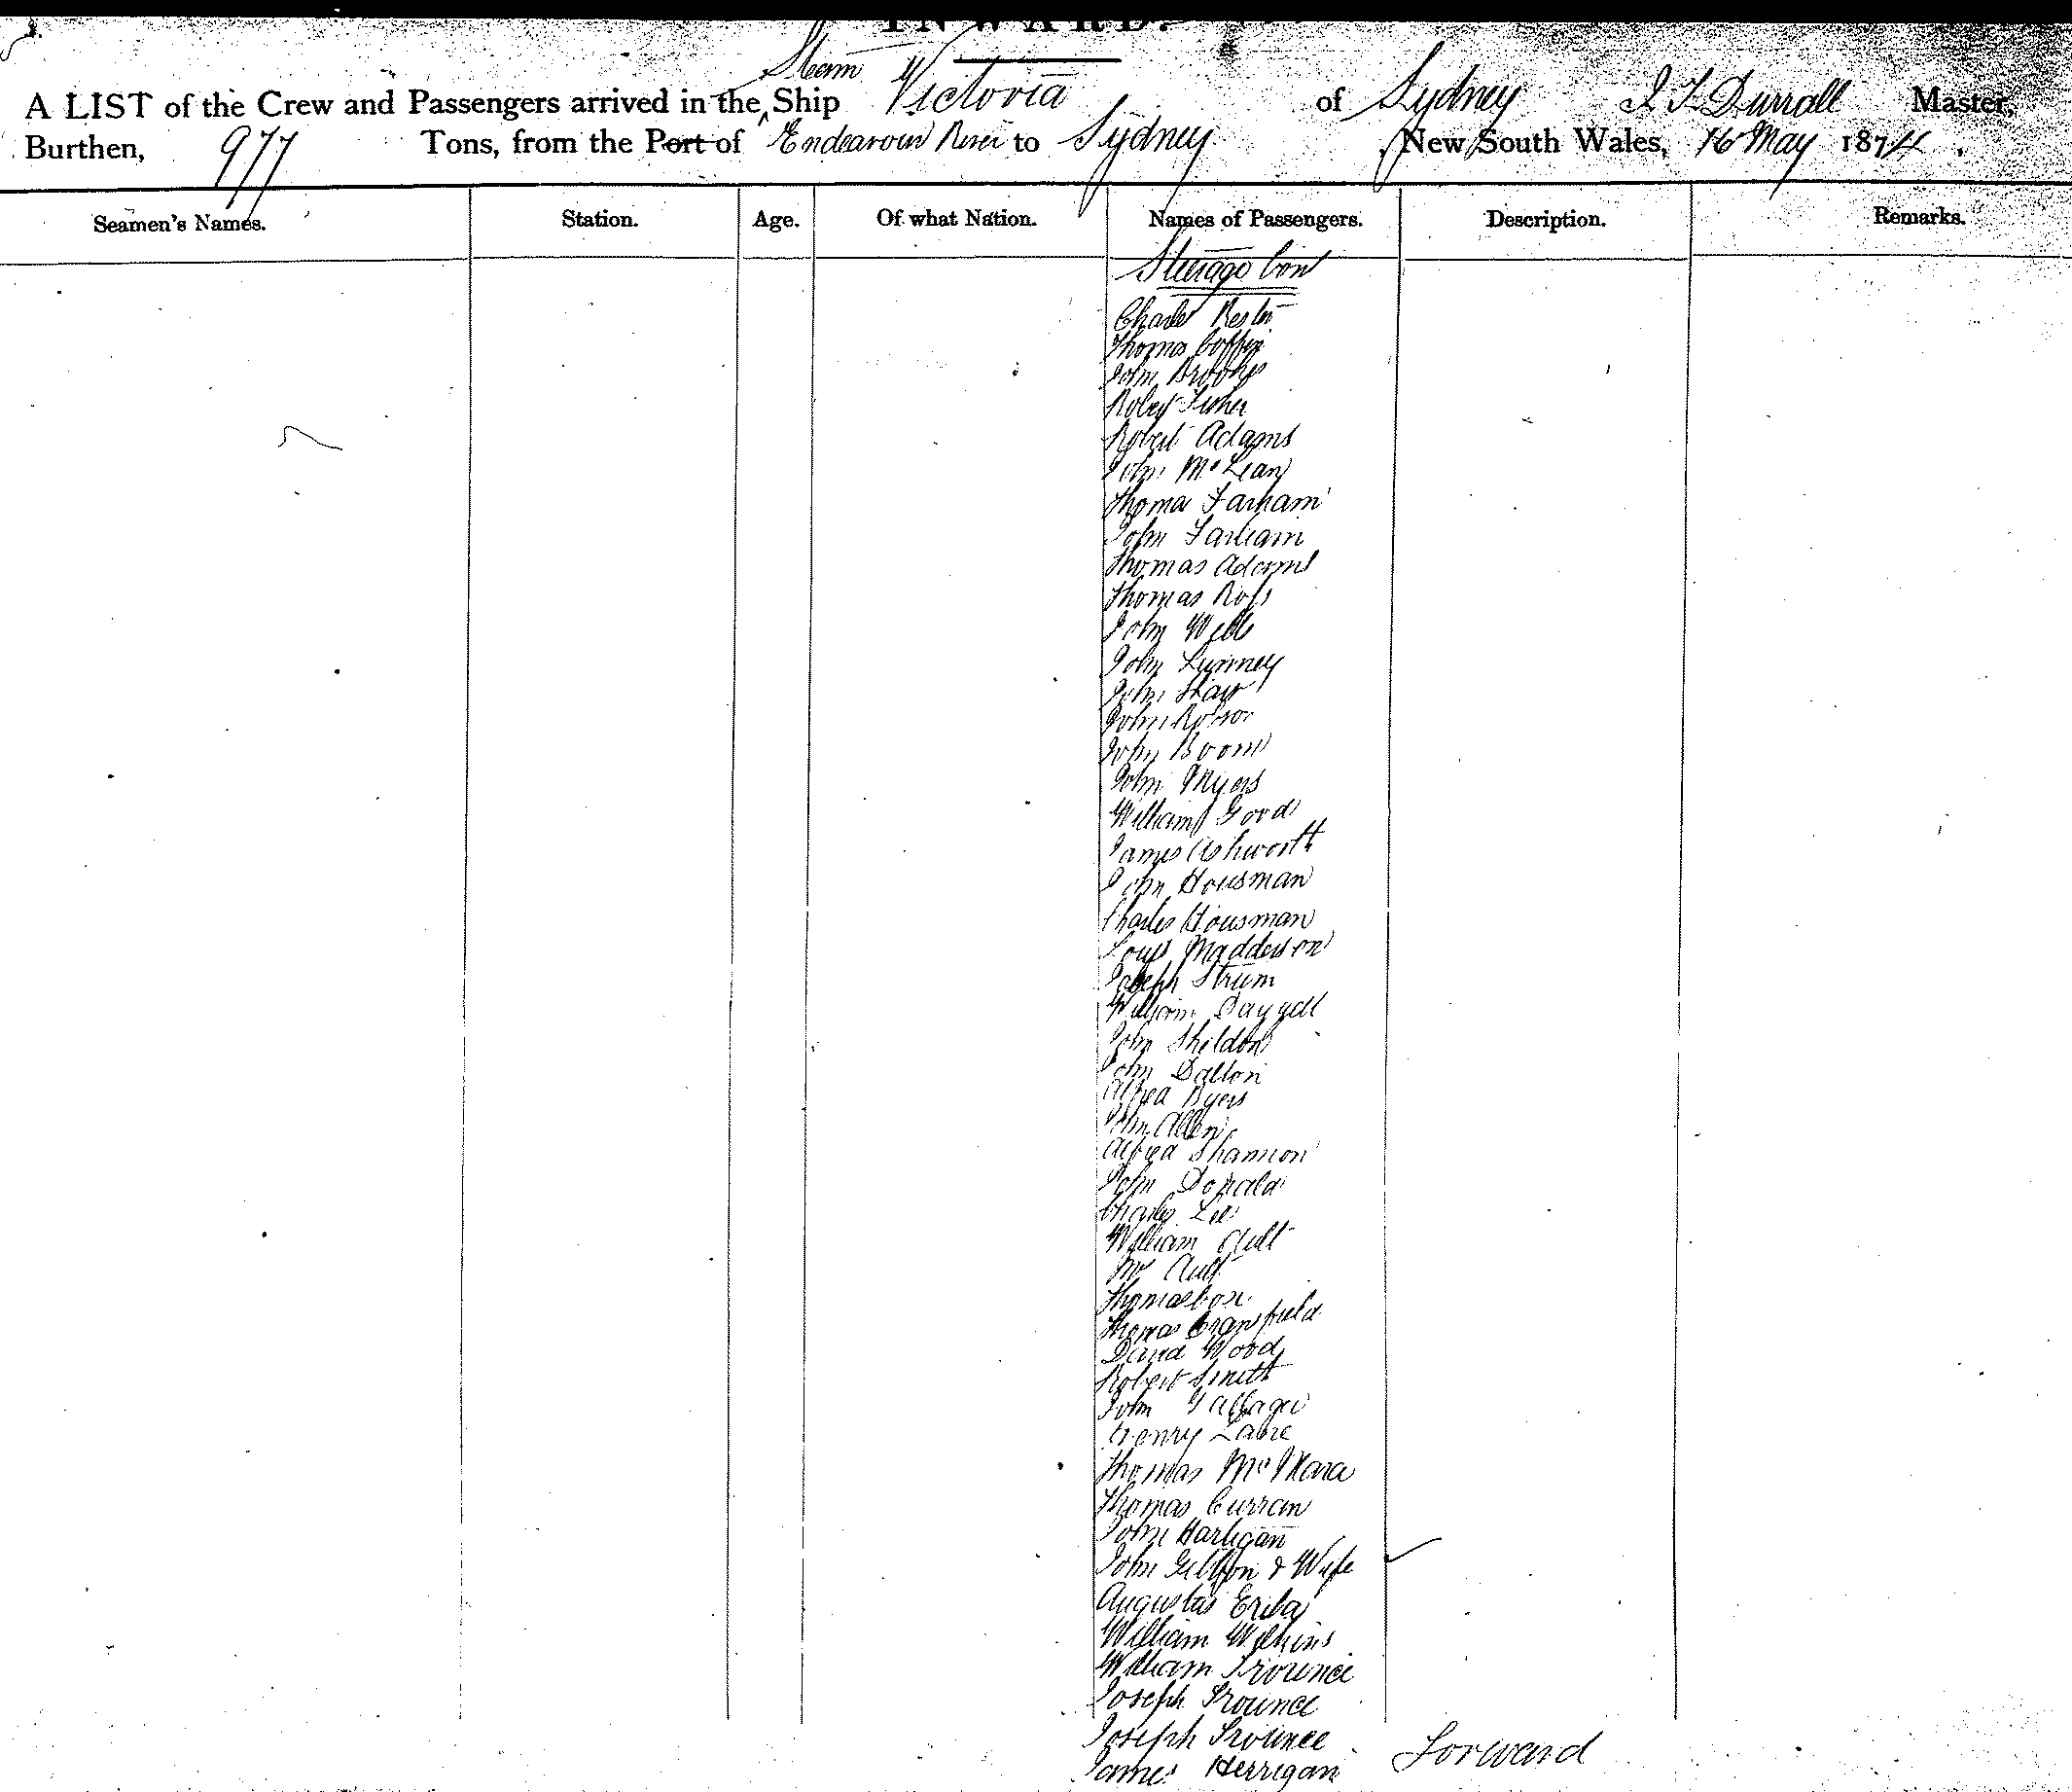 INWARD.
Steam
A LIST of the Crew and Passengers arrived in the ^ Ship Victoria of Sydney Master,
Burthen, 977 Tons, from the Port of Endeavour River to Sydney, New South Wales, 16 May 1874.
Seamen's Names. Station. Age. Of what Nation. Names of Passengers. Description. Remarks.
Steerage Con
Charles
Thomas Coffin
John Brookes
Robert Fisher
Robert Adams
John McLean
Thomas Farham
John Farham
Thomas Adams
Thomas Ross
John Webb
John Lynney
John Shaw
John Robson
John Boom
John Myers
William Good
James Ashworth
John Housman
Charles Housman
Louis Madderson
Joseph Strum
William Dayyell
John Sheldon
John Dalton
Alfred Byers
John Allen
Alfred Shannon
John Donald
Charles Lee
William Ault
Mr Ault
Thomas Cox
Thomas Cransfield
David Wood
Robert Smith
John
Henry Lane
Thomas McMara
Thomas Curran
John Hartigan
John Gibson & Wife
Augustus
William Wilkins
William Provence
Joseph Prounce
Joseph Prounce
James Herrigan Forward